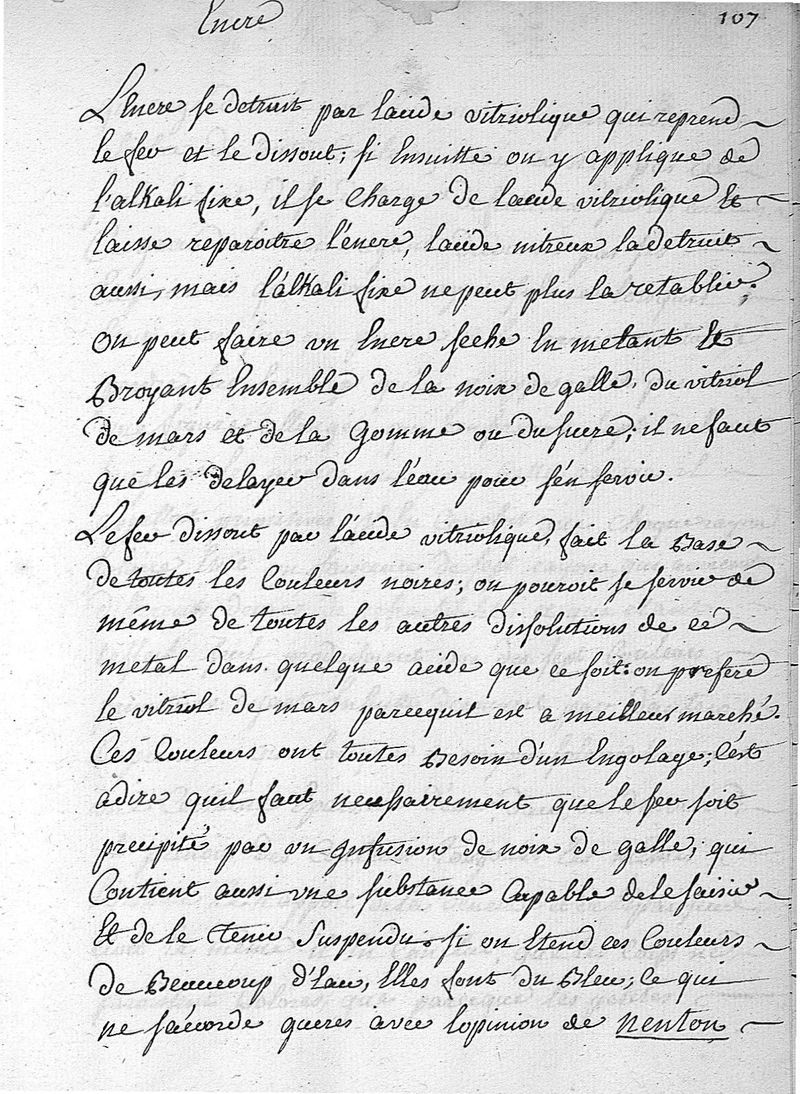 Encre
107
L'Encre se detruit par l'acide vitriolique qui reprend
le fer et le dissout; si Ensuitte on y applique de
l'alkali fixe, il se Charge de l'acide vitriolique Et
laisse reparoitre l'encre, l'acide nitreux la detruit
aussi, mais l'alkali fixe ne peut plus la retablir.
On peut faire un Encre seche En melant Et
Broyant Ensemble de la noix de galle, du vitriol
de mars et de la Gomme ou du sucre; il ne faut
que les delayer dans l'eau pour s'en servir.
Le fer dissout par l'acide vitriolique, fait la Base
de toutes les Couleurs noires; on pouroit se servir de
même de toutes les autres dissolutions de ce
metal dans quelque acide que ce soit: on prefere
le vitriol de mars parcequil est a meilleur marché.
Ces Couleurs ont toutes Besoin d'un Engolage; C'est
adire quil faut necessairement que le fer soit
precipité par un Infusion de noix de galle, qui
Contient aussi une substance Capable de le saisir
Et de le tenir suspendu. si on Etend ces Couleurs
de Beaucoup d'Eau, Elles font du Bleu; Ce qui
ne s'acorde gueres avec l'opinion de Neuton